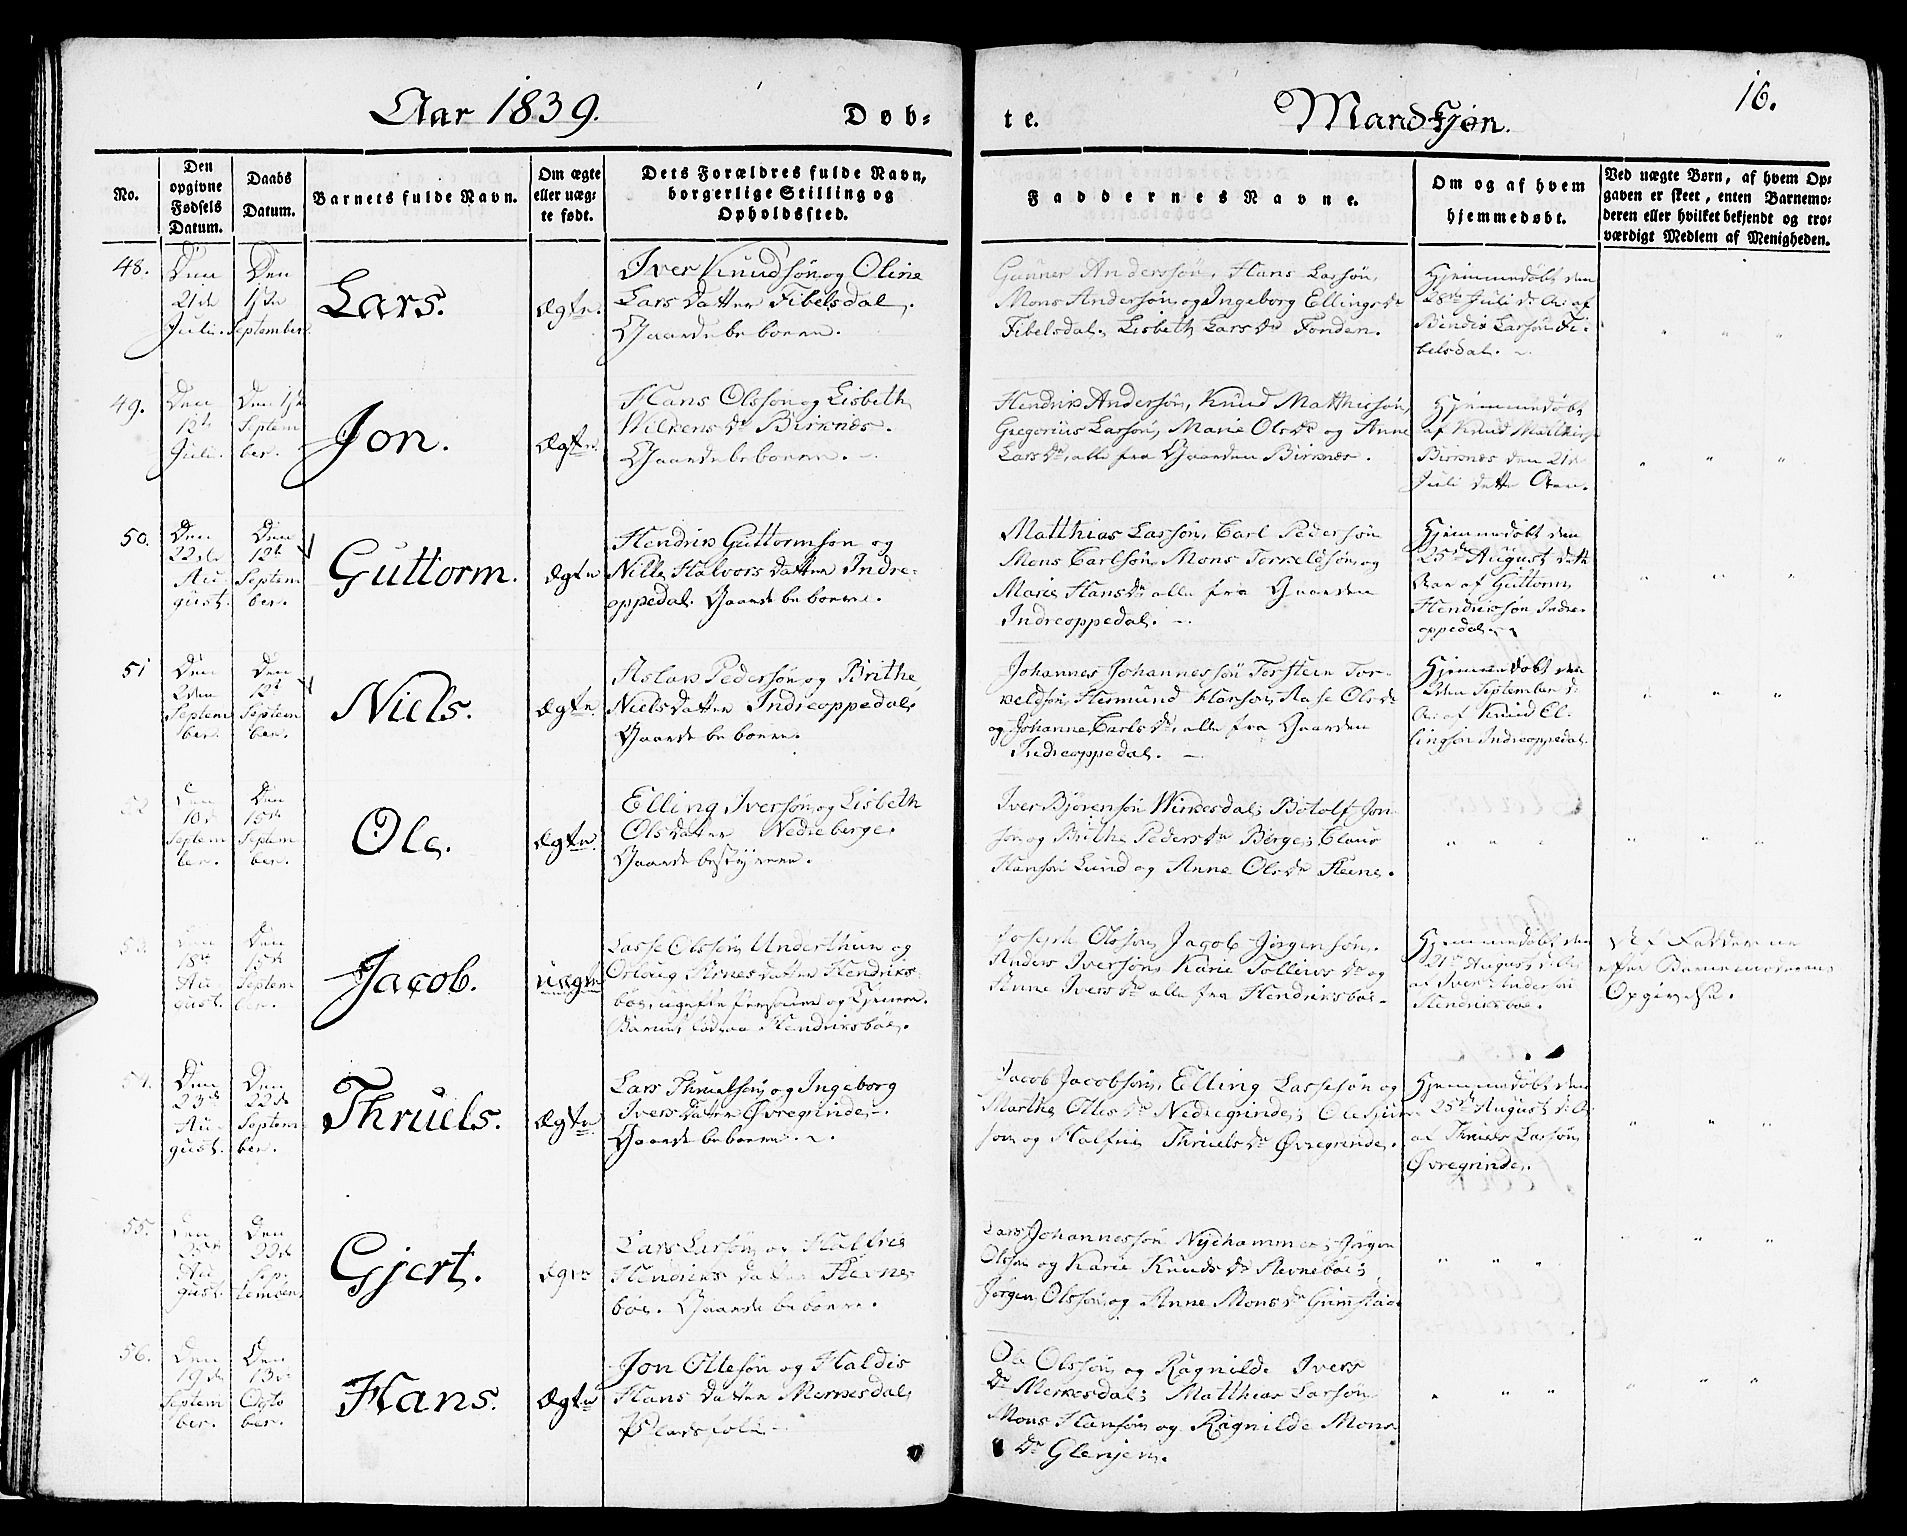 Aar 1839. Døb-
te. Mandkjøn. 16.
No.
Den opgivne Fødsels Datum.
Daabs Datum.
Barnets fulde Navn.
Om ægte eller uægte født.
Dets Forældres fulde Navn, borgerlige Stilling og Opholdssted.
Faddernes Navne.
Om og af hvem hjemmedøbt.
Ved uægte Børn, af hvem Opgaven er skeet, enten Barnemoderen eller hvilket bekjendt og troværdigt Medlem af Menigheden.
48.
Den
21de
Juli.
Den
1ste
September.
Lars.
Ægte.
Iver Knudsøn og Oline
Larsdatter Fibelsdal,
Gaardbeboere.
Gunner Anderssøn, Hans Larsøn,
Mons Andersøn og Ingeborg Ellingsdr
Fibelsdal; Lisbeth Larsdr Fonden.
Hjemmedøbt den
28de Juli d. A. af
Bendix Larsøn Fi-
belsdal.
49.
Den
Juli.
Den 1ste
Septem
ber.
Jon.
Ægte.
Hans Olssøn og Lisbeth
Wilkensdr Birknes.
Gaardbeboere.
Hendrik Andersøn, Knud Matthissøn,
Gregorius Larsøn, Marie Olsdr og Anne
Larsdr, alle fra Gaarden Birknes.
Hjemmedøbt
af Knud Matthiss
Birknes den 21de
Juli dette Aar.
50.
Den
22de
Au
gust.
Den
12te
Septem
ber.
Guttorm.
Ægte
Hendrik Guttormson og
Nille Halvorsdatter Indre-
oppedal. Gaardbeboere.
Matthias Larsøn, Carl Pedersøn
Mons Carlsøn, Mons Torkelsøn og
Marie Hansdr alle fra Gaarden
Indreoppedal.
Hjemmedøbt den
25de August dette
Aar af Guttorm
Hendriksøn Indre-
oppedal.
51
Den
2den
Septem
ber.
Den
12te
Septem
ber.
Niels.
Ægte.
Aslak Pedersøn og Brithe
Nielsdatter Indreoppedal,
Gaardbeboere.
Johannes Johannessøn Torsteen Tor-
keldsøn, Hermund Hansøn, Aase Olsdr
og Johanne Carlsdr, alle fra Gaarden
Indreoppedal.
Hjemmedøbt den
2den September d.
A. af Knud El-
lingsøn Indreoppedal.
52
Den
10de
Septem
ber.
Den
15de
Septem
ber.
Ole.
Ægte.
Elling Iversøn og Lisbeth
Olsdatter Nedreberge.
Gaardbestyrere.
Iver Bjørensøn Wirkesdal; Botolf Jon
søn og Brithe Pedersdr Berge; Claus
Hansøn Lund og Anne Olsdr Steine.
53.
Den
18de
Au
gust.
Den
15de
Septem
ber.
Jacob.
uægte
Lasse Olssøn Underthun og
Arnesdatter Hendriks-
bøe, ugifte Personer og Tjenere.
Hendriksbøe.
Joseph Olssøn, Jacob Jørgensøn,
Anders Iversøn, Karie Tollivsdr og
Anne Iversdr alle fra Hendriksbøe.
Hjemmedøbt den
21de August d. A.
af Iver Andersøn
Hendriksbøe.
Af Fadderne
efter Barnemoderens
Opgivelse.
54.
Den
23de
Au
gust.
Den
22de
Septem
ber.
Thruels.
Ægte.
Lars Thruelsøn og Ingeborg
Iversdatter Øvregrinde,
Gaardbeboere.
Jacob Jacobsøn, Elling Lassesøn og
Marthe Ollesdr Nedregrinde;
søn og Halfrie Thruelsdr Øvregrinde.
Hjemmedøbt den
25de August d. A.
af Thruels Larsøn
Øvregrinde.
55.
Den
25de
Au
gust
Den
22de
Sep-
tember.
Gjert.
Ægte
Lars Larsøn og Halfrie
Hendriksdatter Stevne-
bøe. Gaardbeboere.
Lars Johannessøn Nyehammer; Jørgen
Olssøn og Karie Knudsdr Stevnebøe;
Jørgen Olssøn og Anne Monsdr Grimstad
56.
Den
19de
Septem
ber.
Den
13de
Octo
ber.
Hans.
Ægte
Jon Ollesøn og Haldis
Hansdatter Merkesdal,
Pladsfolk
Ole Olssøn og Ragnilde Ivers
dr Merkesdal; Matthias Larsøn
Mons Hansøn og Ragnilde Mons
dr Glenjem.